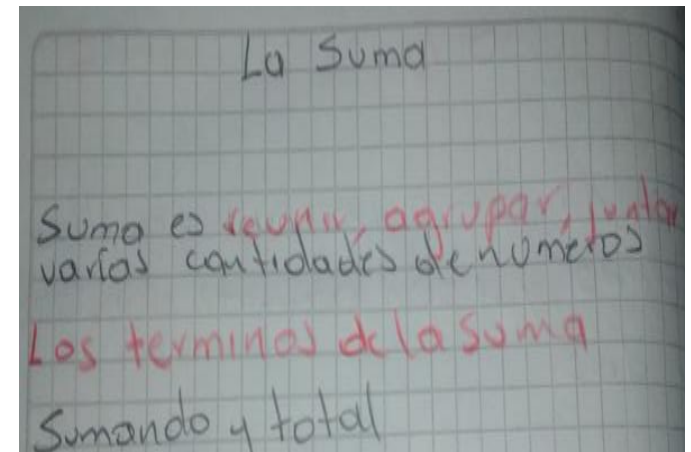 La Suma
Suma es reunir, agrupar, juntar
varias cantidades de numeros
Los terminos de la suma
Sumando y total